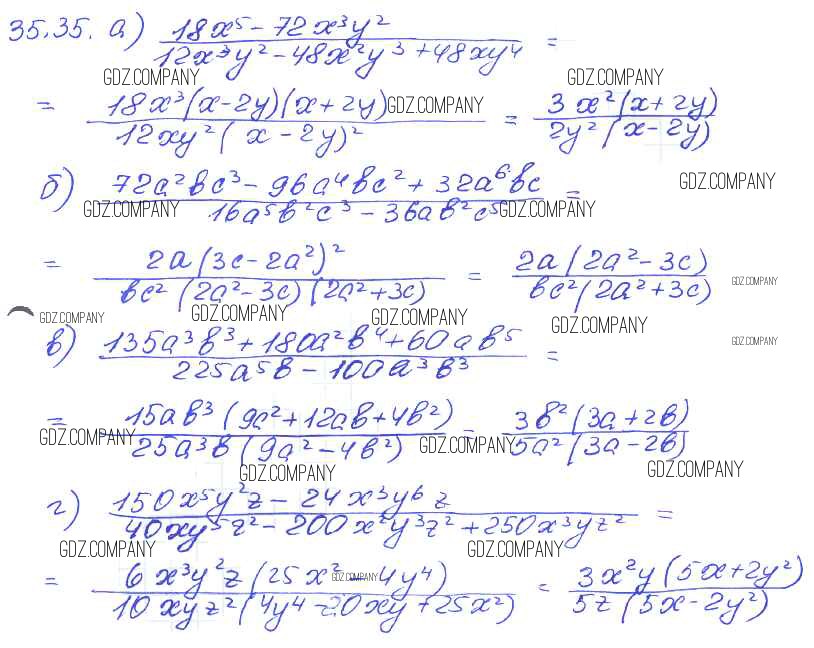 35.35. а) 18x⁵ - 72x³y² / 12x³y² - 48x²y³ + 48xy⁴ =
GDZ.COMPANY GDZ.COMPANY
= 18x³(x-2y)(x+2y) / 12xy²(x-2y)² = 3x²(x+2y) / 2y²(x-2y)
GDZ.COMPANY
б) 72a²bc³ - 96a⁴bc² + 32a⁶bc / 16a⁵b²c³ - 36ab²c⁵ =
GDZ.COMPANY GDZ.COMPANY GDZ.COMPANY
= 2a(3c-2a²)² / bc²(2a²-3c)(2a²+3c) = 2a(2a²-3c) / bc²(2a²+3c)
GDZ.COMPANY
GDZ.COMPANY GDZ.COMPANY GDZ.COMPANY GDZ.COMPANY
в) 135a³b³ + 180a²b⁴ + 60ab⁵ / 225a⁵b - 100a³b³ =
GDZ.COMPANY
= 15ab³(9a²+12ab+4b²) / 25a³b(9a²-4b²) = 3b²(3a+2b) / 5a²(3a-2b)
GDZ.COMPANY GDZ.COMPANY
GDZ.COMPANY GDZ.COMPANY
г) 150x⁵y²z - 24x³y⁶z / 40xy⁵z² - 200x²y³z² + 250x³yz² =
GDZ.COMPANY GDZ.COMPANY
= 6x³y²z(25x² - 4y⁴) / 10xyz²(4y⁴ - 20xy + 25x²) = 3x²y(5x+2y²) / 5z(5x-2y²)
GDZ.COMPANY